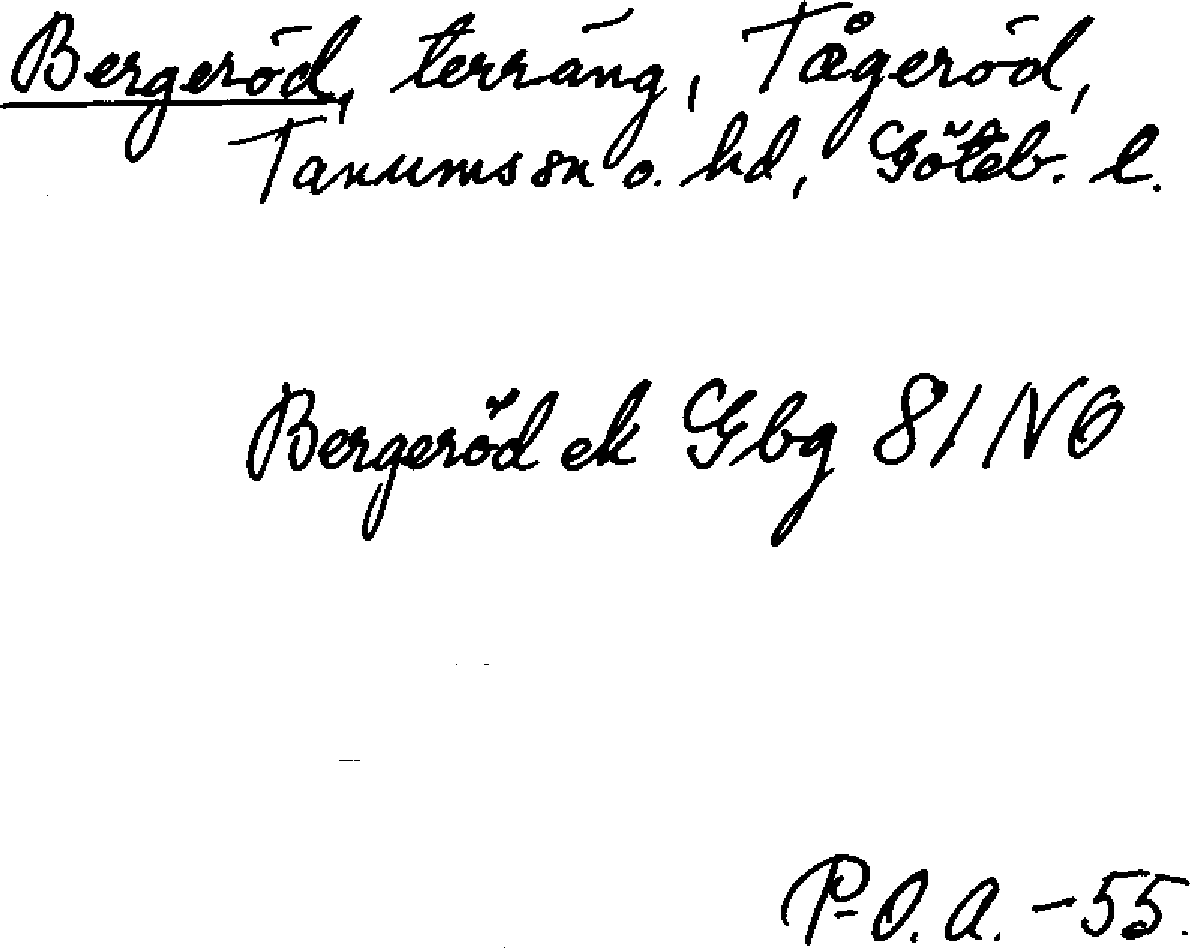 Bergeröd, terräng, Tågeröd,
Tanums sn o. hd, Göteb. l.
Bergeröd ek Gbg 81 NO
P-O. A. -55.